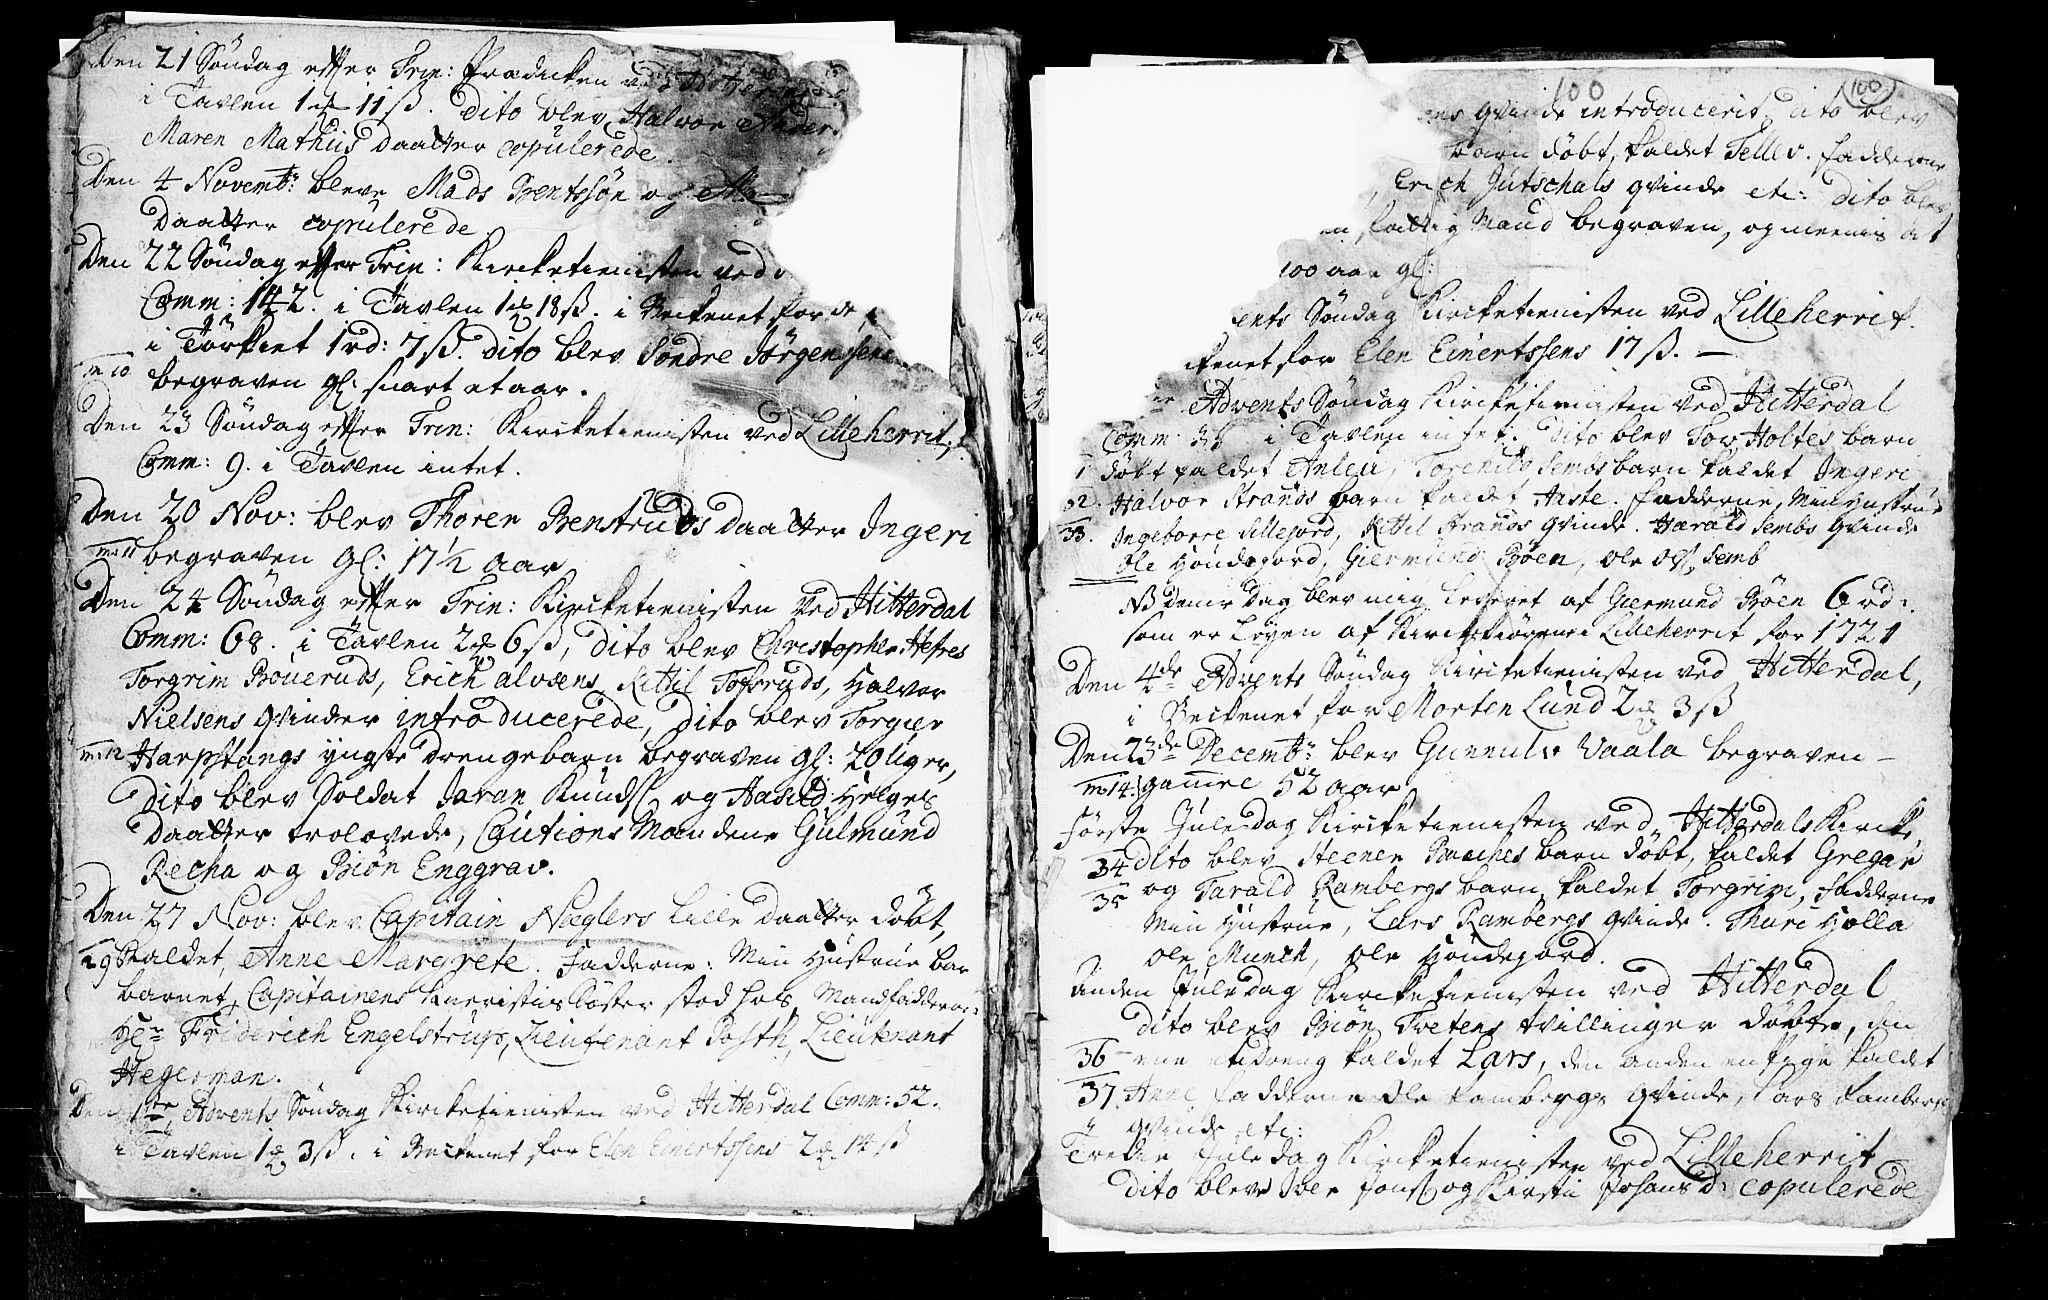 Den 21 Søndag effter Trin: Prædicken ved Hitterdal
i Tavlen 1 11 ß. dito blev Halvor Anders
Maren Mathiis Daatter copulerede.
Den 4 Novemb: bleve Mads Bentssøn og
Daatter copulerede
Den 22 Søndag effter Trin: Kircketienisten ved
Comm: 142. i Tavlen 1 18 ß. i Beckenet for
i Tørklet 1 rd: 7 ß. dito blev Søndre Jørgenssens
m 10 begraven gl: snart et aar.
Den 23 Søndag effter Trin: Kircketienisten ved Lilleherrit,
Comm: 9. i Tavlen intet.
Den 20 Nov: blev Thoren Benstruds Daatter Ingeri
m: 11 begraven gl: 17½ aar
Den 24 Søndag effter Trin: Kircketienisten ved Hitterdal
Comm: 68. i Tavlen 2 6 ß, dito blev Christopher Hefres
Torgrim Boueruds, Erich alvsens, Kittil Tofsryds, Halvor
Nielsens qvinder introducerede, dito blev Torgier
m: 12 Harpstangs yngste drengebarn begraven gl: 20 uger,
dito blev Soldat Jøran Knuds og Haslld Helges
Daatter trolovede, Cautions Mændene Gulmund
Recha og Biøn Enggrav.
Den 27 Nov: blev Capitain Næglers Lille Daatter døbt,
29 Kaldet, Anne Margrete. Fadderne: Min Hustrue bar
barnet, Capitainens Søster stod hos, Mandfadderne:
Hr: Friderich Engelstrup, Lieutenant Posth, Lieutenant
Hegerman.
Den 1ste Advents Søndag Kircketienisten ved Hitterdal Comm: 52.
i Tavlen 1 3 ß. i Beckenet for Elen Einertssens 2 14 ß
100
100
qvinde introducerit, dito blev
barn døbt, kaldet Tellev. Fadderne
Erich Jutschals qvinde etc: dito blev
fattig Mand begraven, og meenis at
100 aar gl:
Søndag Kircketienisten ved Lilleherrit.
for Elen Einertssens 17 ß. —
Advents Søndag Kircketienisten ved Hitterdal
Comm: 35 i Tavlen intet. Dito blev Tov Holtes barn
døbt kaldet Anlau, Torchild Sembs barn kaldet Ingeri
32. Halvor Strands barn kaldet Aaste. Fadderne, Min Hustrue
33. Ingeborre Lillejord, Kittil Strands qvinde. Harald Sembs qvinde
Ole Høndegord, Giermund Bøen, Ole Semb
NB denne Dag blev mig leveret af Giermund Bøen 6 rd:
som er Løyen af Kirckekiørene i Lilleherrit for 1721
Den 4de Advents Søndag Kircketienisten ved Hitterdal,
i Beckenet for Morten Lund 2 3 ß
Den 23de Decemb: blev Gunnulv Vaala begraven —
m 14: gamel 52 aar,
Første Juledag Kircketienisten ved Hitterdals Kircke,
34 dito blev Steener Baaches barn døbt, kaldet Gregar
35 og Tarald Rambergs barn kaldet Torgrim, Fadderne
Min Hustrue, Lars Rambergs qvinde. Thuri Holla
Ole Munch, Ole Høndegord.
Anden Juledag Kircketienisten ved Hitterdal
dito blev Biøn Tvetens tvillinger døbte, den
36 ene en dreng kaldet Lars, den anden en pige kaldet
37 Anne Fadderne Ole Rambergs qvinde, Lars Rambergs
qvinde etc:
Tredie Juledag Kircketienisten ved Lilleherrit
dito bleve Siver Jons og Kirsti Johans d: copulerede